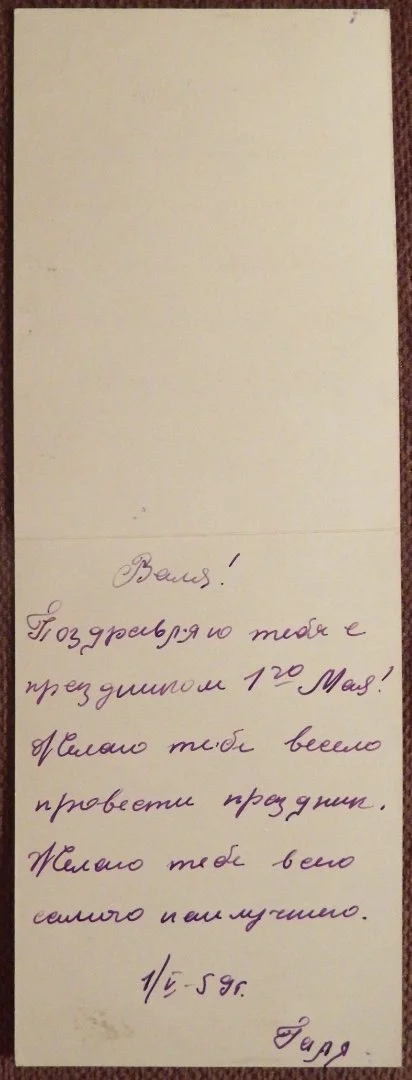 Валя!
Поздравляю тебя с
праздником 1го Мая!
Желаю тебе весело
провести праздник.
Желаю тебе всего
самого наилучшего.
1/V-59г.
Галя